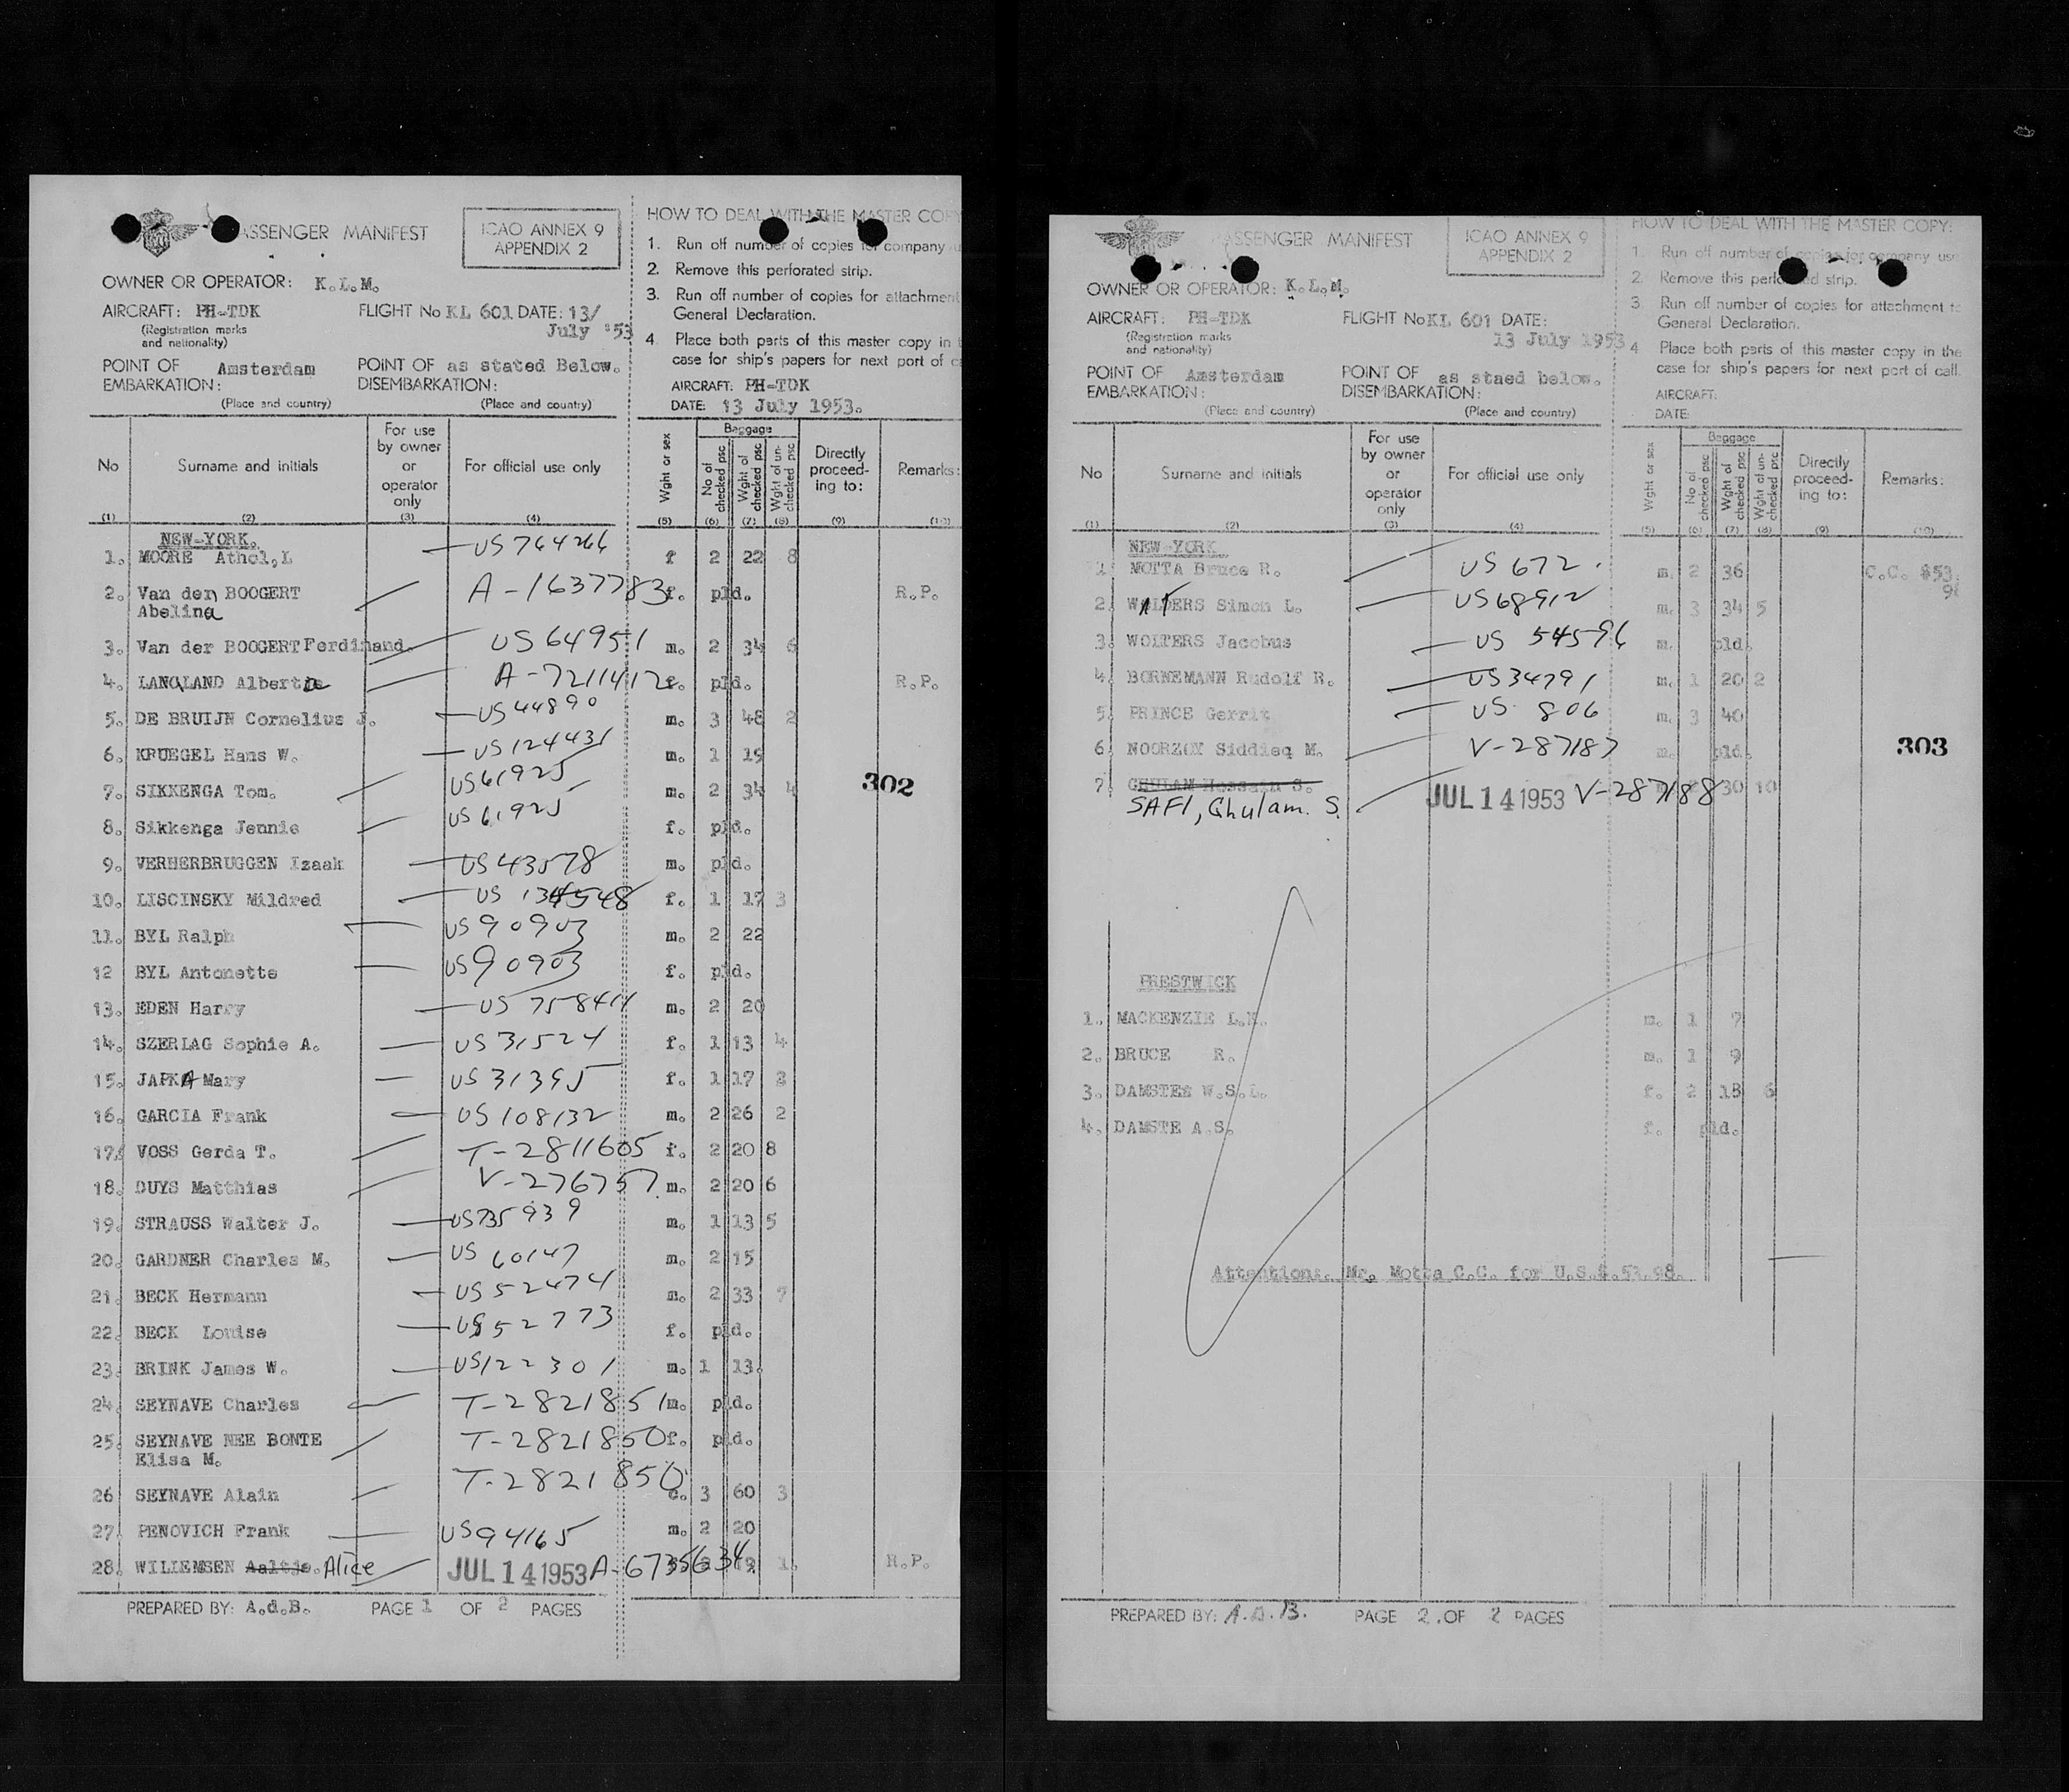 PASSENGER MANIFEST
ICAO ANNEX 9
APPENDIX 2
OWNER OR OPERATOR: K.L.M.
AIRCRAFT: PH-TDK FLIGHT No KL 601 DATE: 13/
(Registration marks July '53
and nationality)
POINT OF Amsterdam POINT OF as stated Below.
EMBARKATION: DISEMBARKATION:
(Place and country) (Place and country)
HOW TO DEAL WITH THE MASTER COPY
1. Run off number of copies for company
2. Remove this perforated strip.
3. Run off number of copies for attachment
General Declaration.
4 Place both parts of this master copy in
case for ship's papers for next port of
AIRCRAFT: PH-TDK
DATE: 13 July 1953.
No Surname and initials For use by owner or operator only For official use only Wght or sex Baggage No of checked psc Wght of checked psc Wght of un-checked psc Directly proceed-ing to: Remarks:
(1) (2) (3) (4) (5) (6) (7) (8) (9) (10)
NEW-YORK.
1. MOORE Athol,L US 764266 f 2 22 8
2. Van den BOOGERT A-1637783 f. pld. R.P.
Abelina
3. Van der BOOGERT Ferdinand. US 64951 m. 2 34 6
4. LANGLAND Alberta A-7211412 f. pld. R.P.
5. DE BRUIJN Cornelius J. US 44890 m. 3 48 2
6. KRUEGEL Hans W. US 124431 m. 1 19
7. SIKKENGA Tom. US 61925 m. 2 34 4
302
8. Sikkenga Jennie US 61925 f. pld.
9. VERHERBRUGGEN Izaak US 43578 m. pld.
10. LISCINSKY Mildred US 134548 f. 1 17 3
11. BYL Ralph US 90903 m. 2 22
12 BYL Antonette US 90903 f. pld.
13. EDEN Harry US 758411 m. 2 20
14. SZERLAG Sophie A. US 31524 f. 1 13 4
15. JAPKA Mary US 31395 f. 1 17 2
16. GARCIA Frank US 108132 m. 2 26 2
17. VOSS Gerda T. T-2811605 f. 2 20 8
18. DUYS Matthias V-276757 m. 2 20 6
19. STRAUSS Walter J. US 735939 m. 1 13 5
20. GARDNER Charles M. US 60147 m. 2 15
21. BECK Hermann US 52474 m. 2 33 7
22. BECK Louise US 52773 f. pld.
23. BRINK James W. US 122301 m. 1 13.
24. SEYNAVE Charles T-2821851 m. pld.
25. SEYNAVE NEE BONTE T-2821850 f. pld.
Elisa M.
26 SEYNAVE Alain T-2821850 c. 3 60 3
27. PENOVICH Frank US 94165 m. 2 20
28. WILLEMSEN Aaltje. Alice JUL 14 1953 A-6735634 2 19 1. R.P.
PREPARED BY: A.d.B. PAGE 1 OF 2 PAGES
PASSENGER MANIFEST
ICAO ANNEX 9
APPENDIX 2
OWNER OR OPERATOR: K.L.M.
AIRCRAFT: PH-TDK FLIGHT No KL 601 DATE:
(Registration marks 13 July 1953
and nationality)
POINT OF Amsterdam POINT OF as staed below.
EMBARKATION: DISEMBARKATION:
(Place and country) (Place and country)
HOW TO DEAL WITH THE MASTER COPY:
1. Run off number of copies for company use
2. Remove this perforated strip.
3. Run off number of copies for attachment to
General Declaration.
4 Place both parts of this master copy in the
case for ship's papers for next port of call.
AIRCRAFT:
DATE:
No Surname and initials For use by owner or operator only For official use only Wght or sex Baggage No of checked psc Wght of checked psc Wght of un-checked psc Directly proceed-ing to: Remarks:
(1) (2) (3) (4) (5) (6) (7) (8) (9) (10)
NEW-YORK
1 MOTTA Bruce R. US 672. m. 2 36 C.C. $53.
98
2. WOLDERS Simon L. US 68912 m. 3 34 5
3. WOLTERS Jacobus US 54596 m. pld.
4. BORNEMANN Rudolf R. US 34791 m. 1 20 2
5. PRINCE Gerrit US 806 m. 3 40
6. NOORZOY Siddieq M. V-287187 m. pld.
303
7. GHULAM Hossain S. JUL 14 1953 V-287188 30 10
SAFI, Ghulam. S.
PRESTWICK
1. MACKENZIE L.K. m. 1 7
2. BRUCE R. m. 1 9
3. DAMSTEE W.S.L. f. 2 18 6
4. DAMSTE A.S. f. pld.
Attention: Mr. Motta C.C. for U.S.$.53.98.
PREPARED BY: A.D.B. PAGE 2. OF 2 PAGES